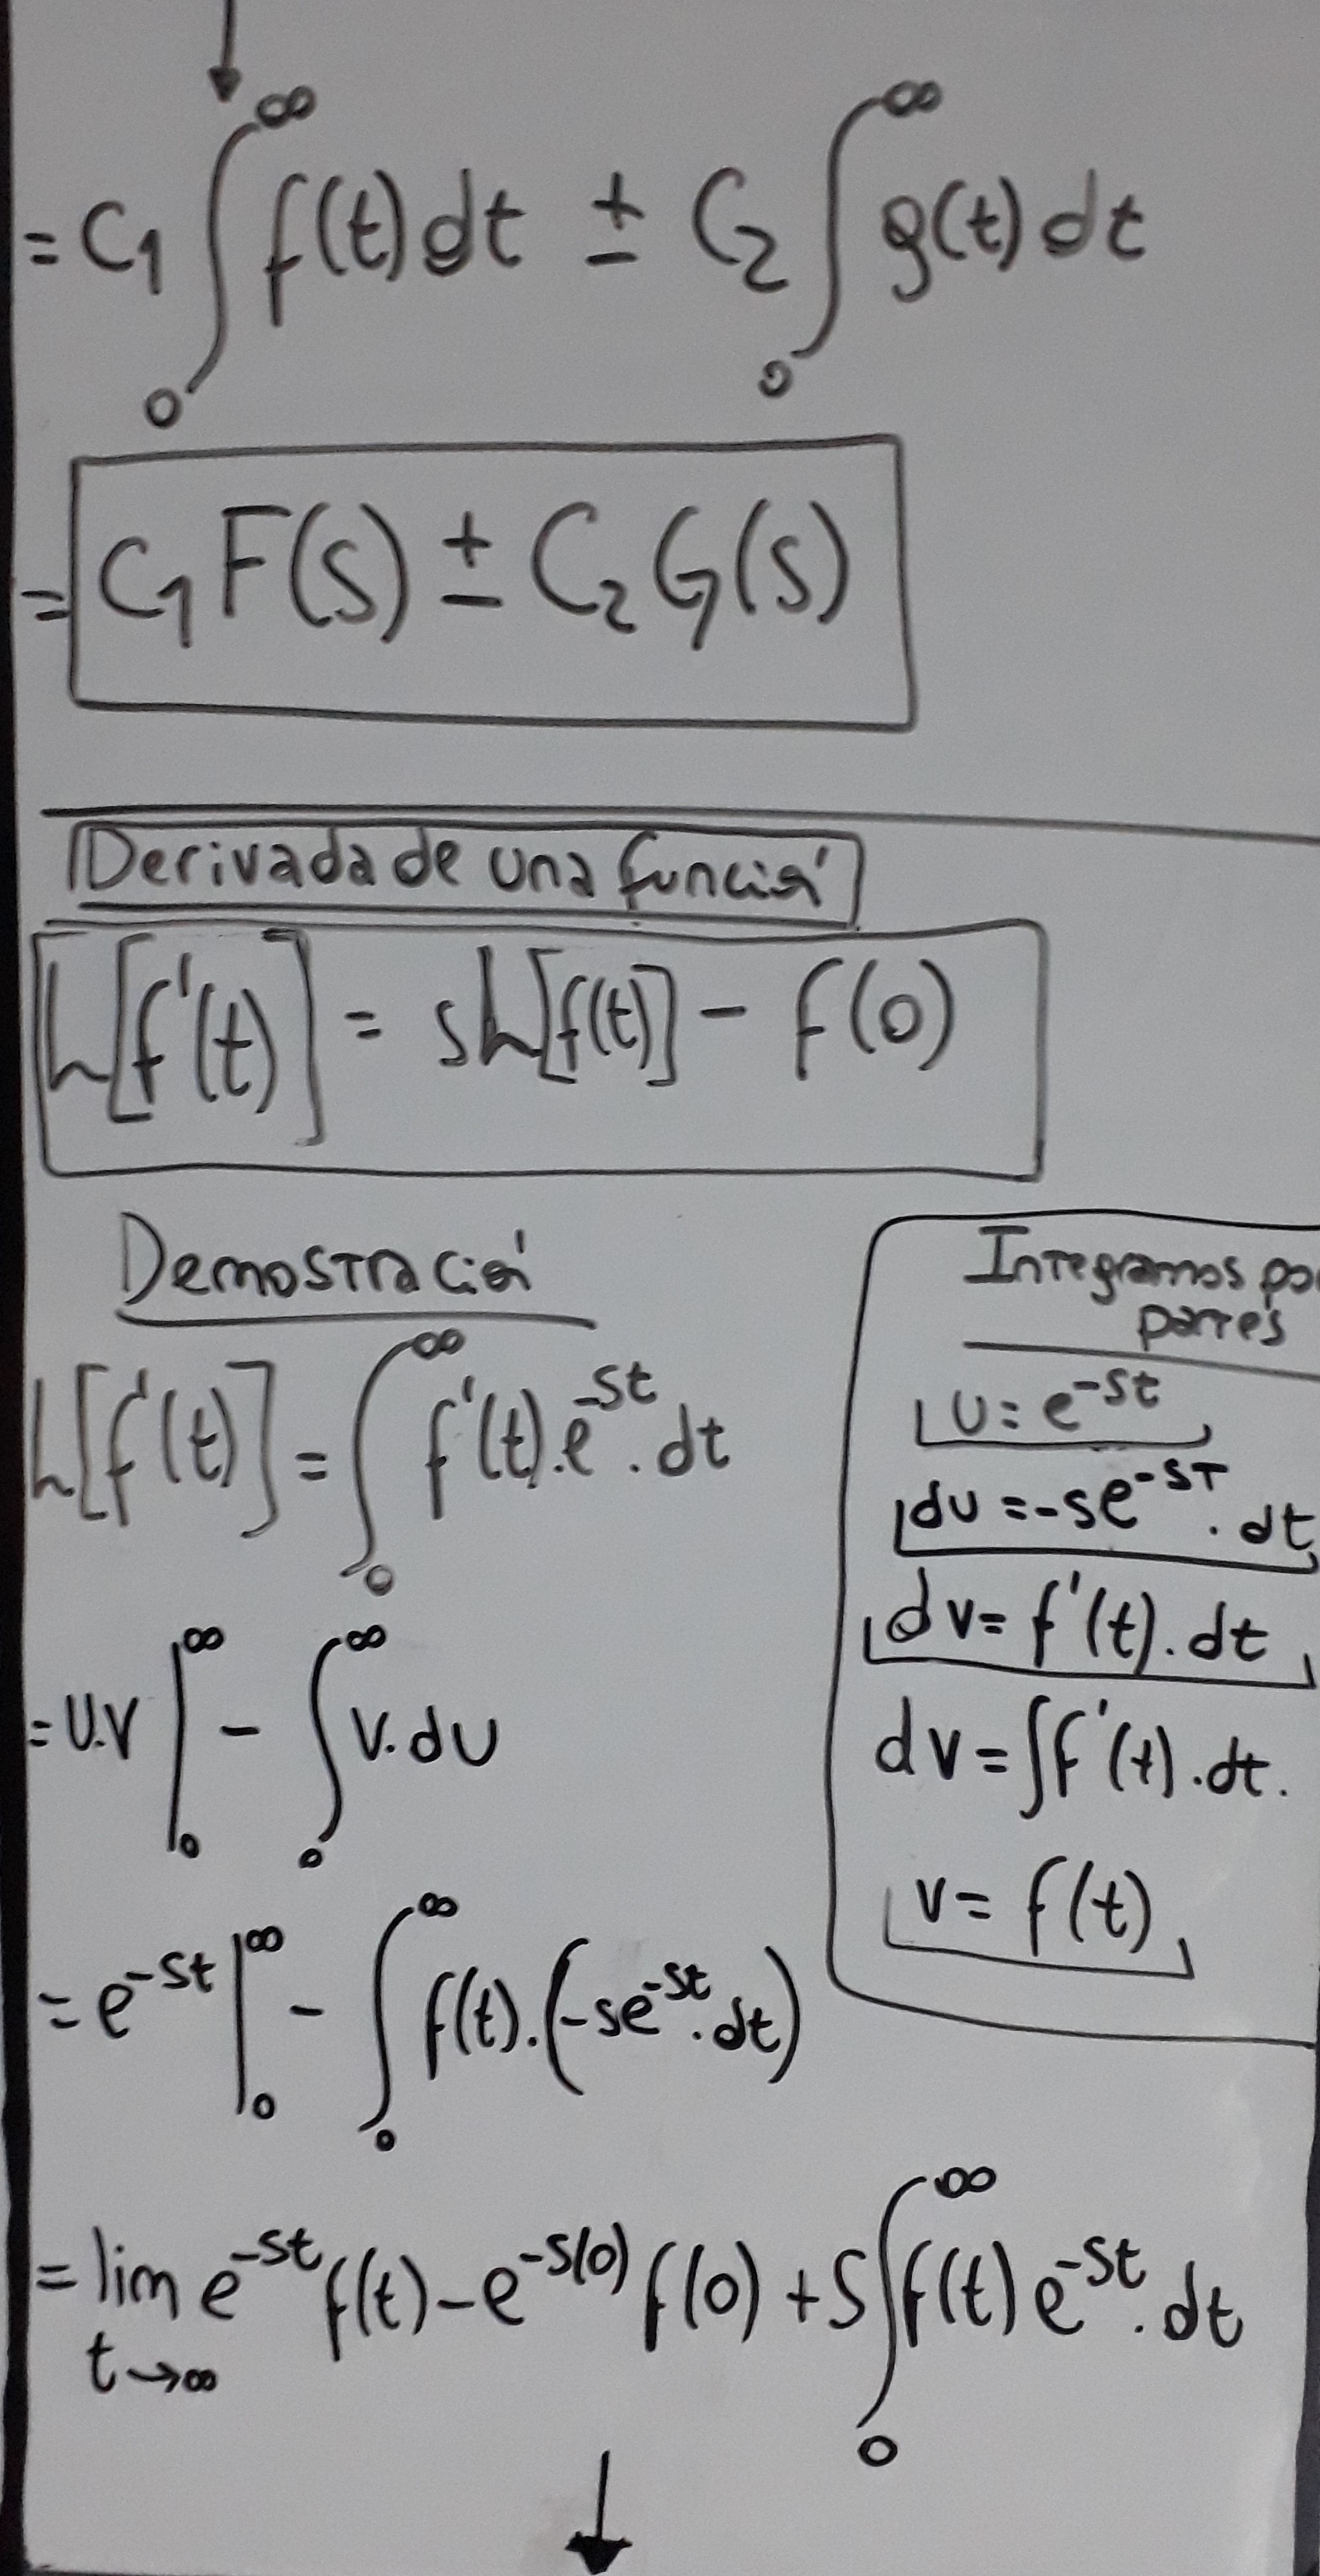 = C₁ ∫₀^∞ f(t) dt ± C₂ ∫₀^∞ g(t) dt
= C₁ F(s) ± C₂ G(s)
Derivada de una función
L[f'(t)] = sL[f(t)] - f(0)
Demostración
L[f'(t)] = ∫₀^∞ f'(t).e^-st . dt
= U.V |₀^∞ - ∫₀^∞ V.dU
= e^-st |₀^∞ - ∫₀^∞ f(t).(-se^-st . dt)
= lim t→∞ e^-st f(t) - e^-s(0) f(0) + S ∫₀^∞ f(t) e^-st . dt
Integramos po
partes
U = e^-st
dU = -se^-sT . dt
dv = f'(t) . dt
dv = ∫f'(t) . dt.
v = f(t)